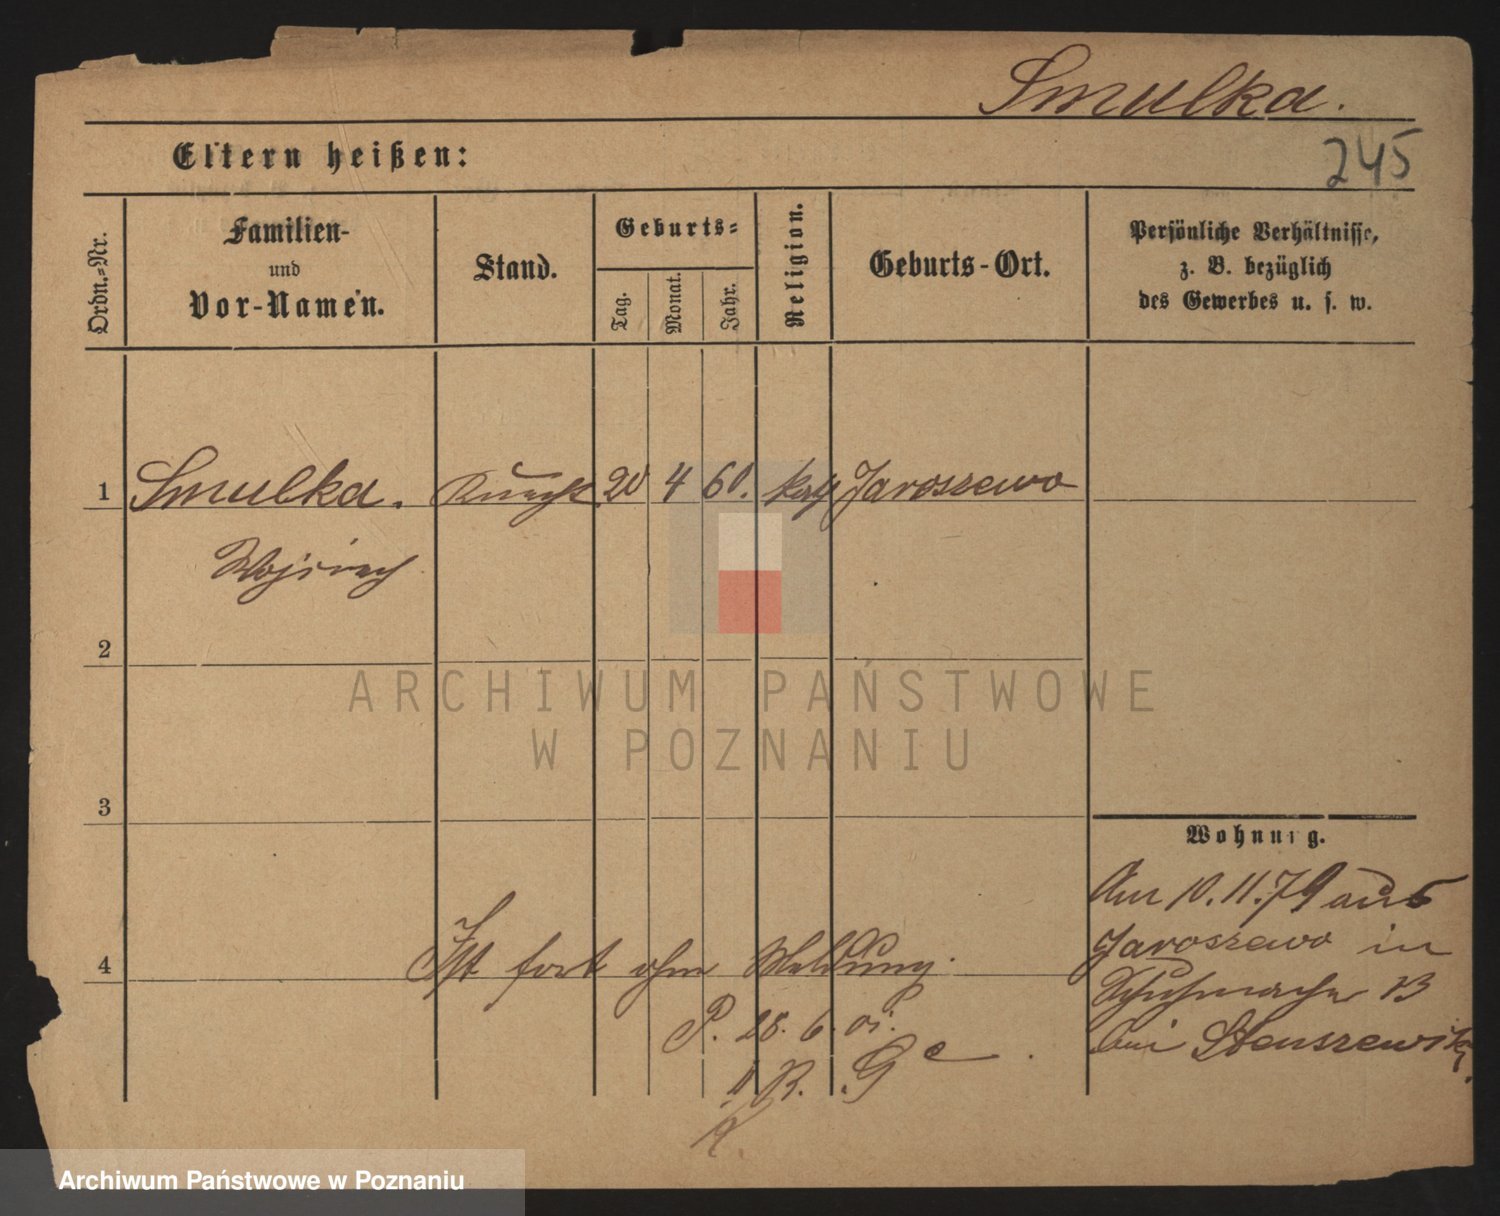 Smulka.
245
Eltern heißen:
Ordn.-Nr.
Familien-
und
Vor-Namen.
Stand.
Geburts-
Tag.
Monat.
Jahr.
Religion.
Geburts-Ort.
Persönliche Verhältnisse,
z. B. bezüglich
des Gewerbes u. s. w.
1 Smulka. Knecht 20 4 60. kath Jaroszewo
Wojciech
2
ARCHIWUM PAŃSTWOWE
W POZNANIU
3
Wohnung.
Am 10.11.79 aus
Jaroszewo in
Schuhmacher 13
bei
4 Ist fort ohne Meldung.
P. 28. 6. 
Archiwum Państwowe w Poznaniu